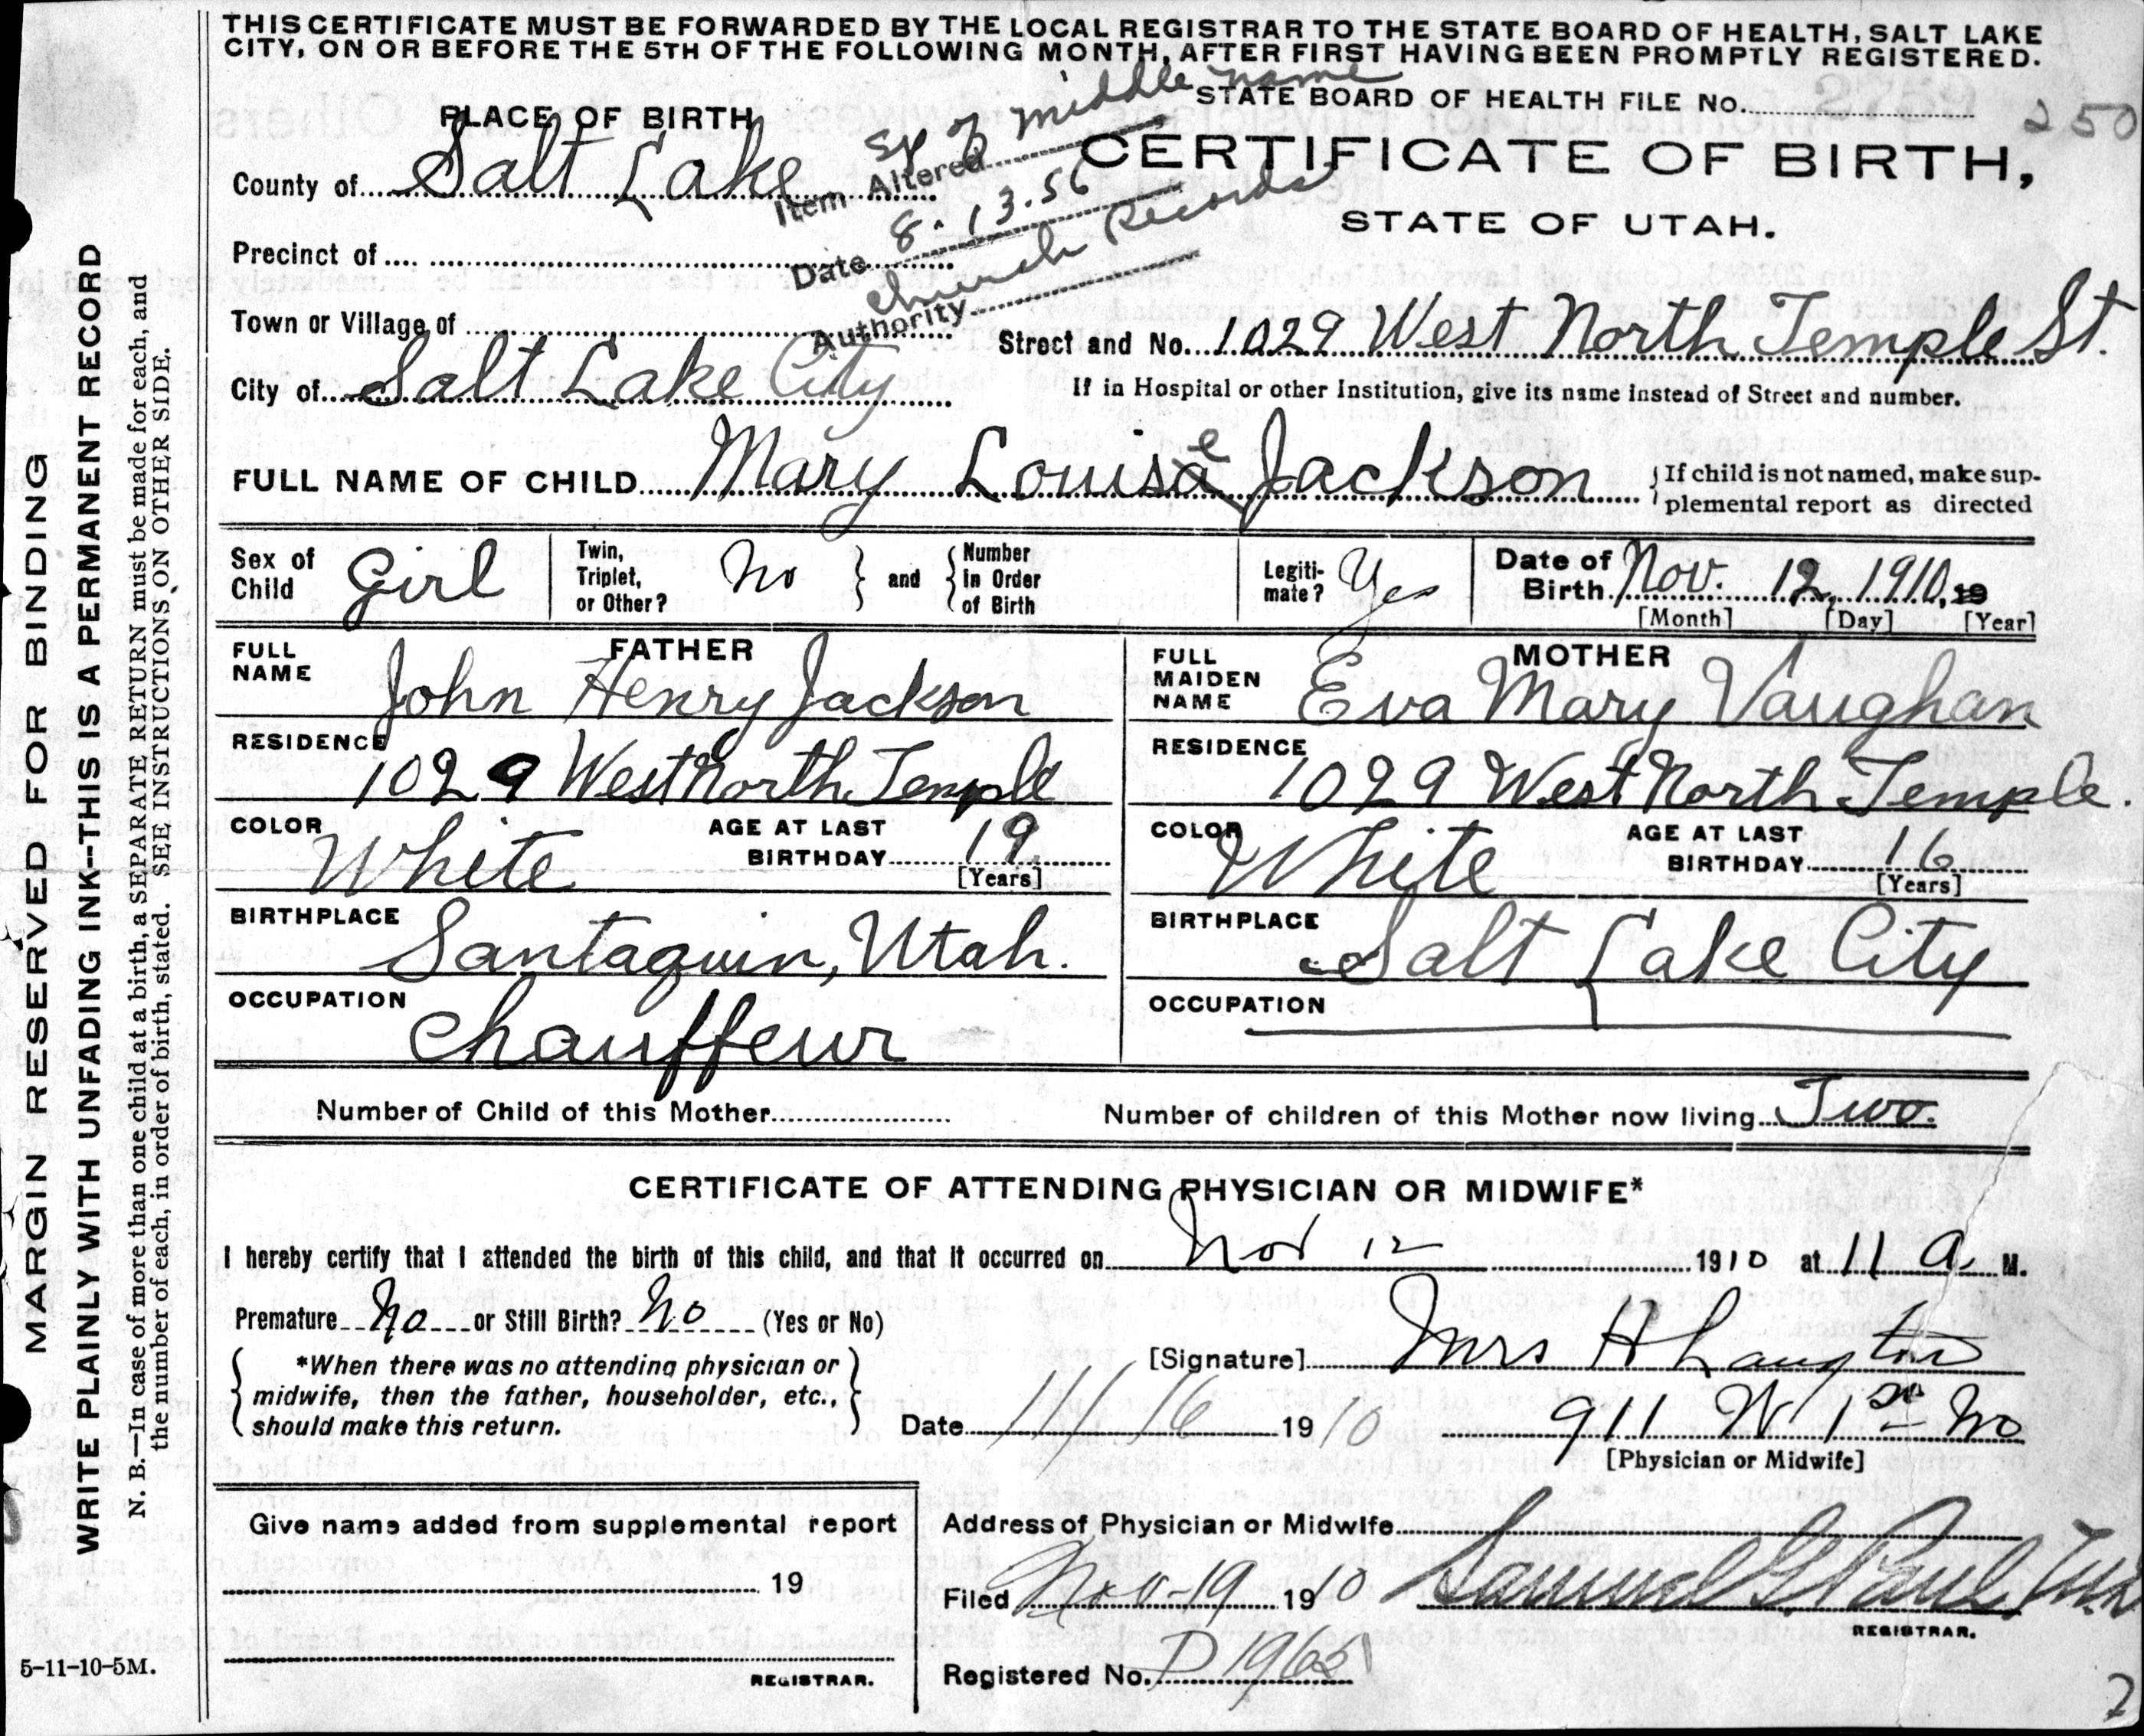 THIS CERTIFICATE MUST BE FORWARDED BY THE LOCAL REGISTRAR TO THE STATE BOARD OF HEALTH, SALT LAKE
CITY, ON OR BEFORE THE 5TH OF THE FOLLOWING MONTH, AFTER FIRST HAVING BEEN PROMPTLY REGISTERED.
STATE BOARD OF HEALTH FILE No. 250
PLACE OF BIRTH
CERTIFICATE OF BIRTH,
STATE OF UTAH.
Item Altered Sp of middle name
Date 8.13.56
Authority Church Records
County of Salt Lake
Precinct of
Town or Village of
Street and No. 1029 West North Temple St.
City of Salt Lake City
If in Hospital or other Institution, give its name instead of Street and number.
FULL NAME OF CHILD Mary Louisa e Jackson
If child is not named, make sup-
plemental report as directed
Sex of Child Girl
Twin, Triplet, or Other? No
and Number in Order of Birth
Legiti-mate? Yes
Date of Birth Nov. 12, 1910, 19
[Month] [Day] [Year]
FATHER
FULL NAME John Henry Jackson
RESIDENCE 1029 West North Temple
COLOR White
AGE AT LAST BIRTHDAY 19
[Years]
BIRTHPLACE Santaquin, Utah.
OCCUPATION Chauffeur
MOTHER
FULL MAIDEN NAME Eva Mary Vaughan
RESIDENCE 1029 West North Temple.
COLOR White
AGE AT LAST BIRTHDAY 16
[Years]
BIRTHPLACE Salt Lake City
OCCUPATION
Number of Child of this Mother
Number of children of this Mother now living Two.
CERTIFICATE OF ATTENDING PHYSICIAN OR MIDWIFE*
I hereby certify that I attended the birth of this child, and that it occurred on Nov 12 1910 at 11 A. M.
Premature No or Still Birth? No (Yes or No)
*When there was no attending physician or
midwife, then the father, householder, etc.,
should make this return.
[Signature] Mrs H Langton
Date 11/16 1910
911 W 1st No
[Physician or Midwife]
Give name added from supplemental report
19
REGISTRAR.
Address of Physician or Midwife
Filed Nov-19 1910 Samuel G Paul
REGISTRAR.
Registered No. D 1965
5-11-10-5M.
MARGIN RESERVED FOR BINDING
WRITE PLAINLY WITH UNFADING INK--THIS IS A PERMANENT RECORD
N. B.—In case of more than one child at a birth, a SEPARATE RETURN must be made for each, and
the number of each, in order of birth, stated. SEE INSTRUCTIONS ON OTHER SIDE.